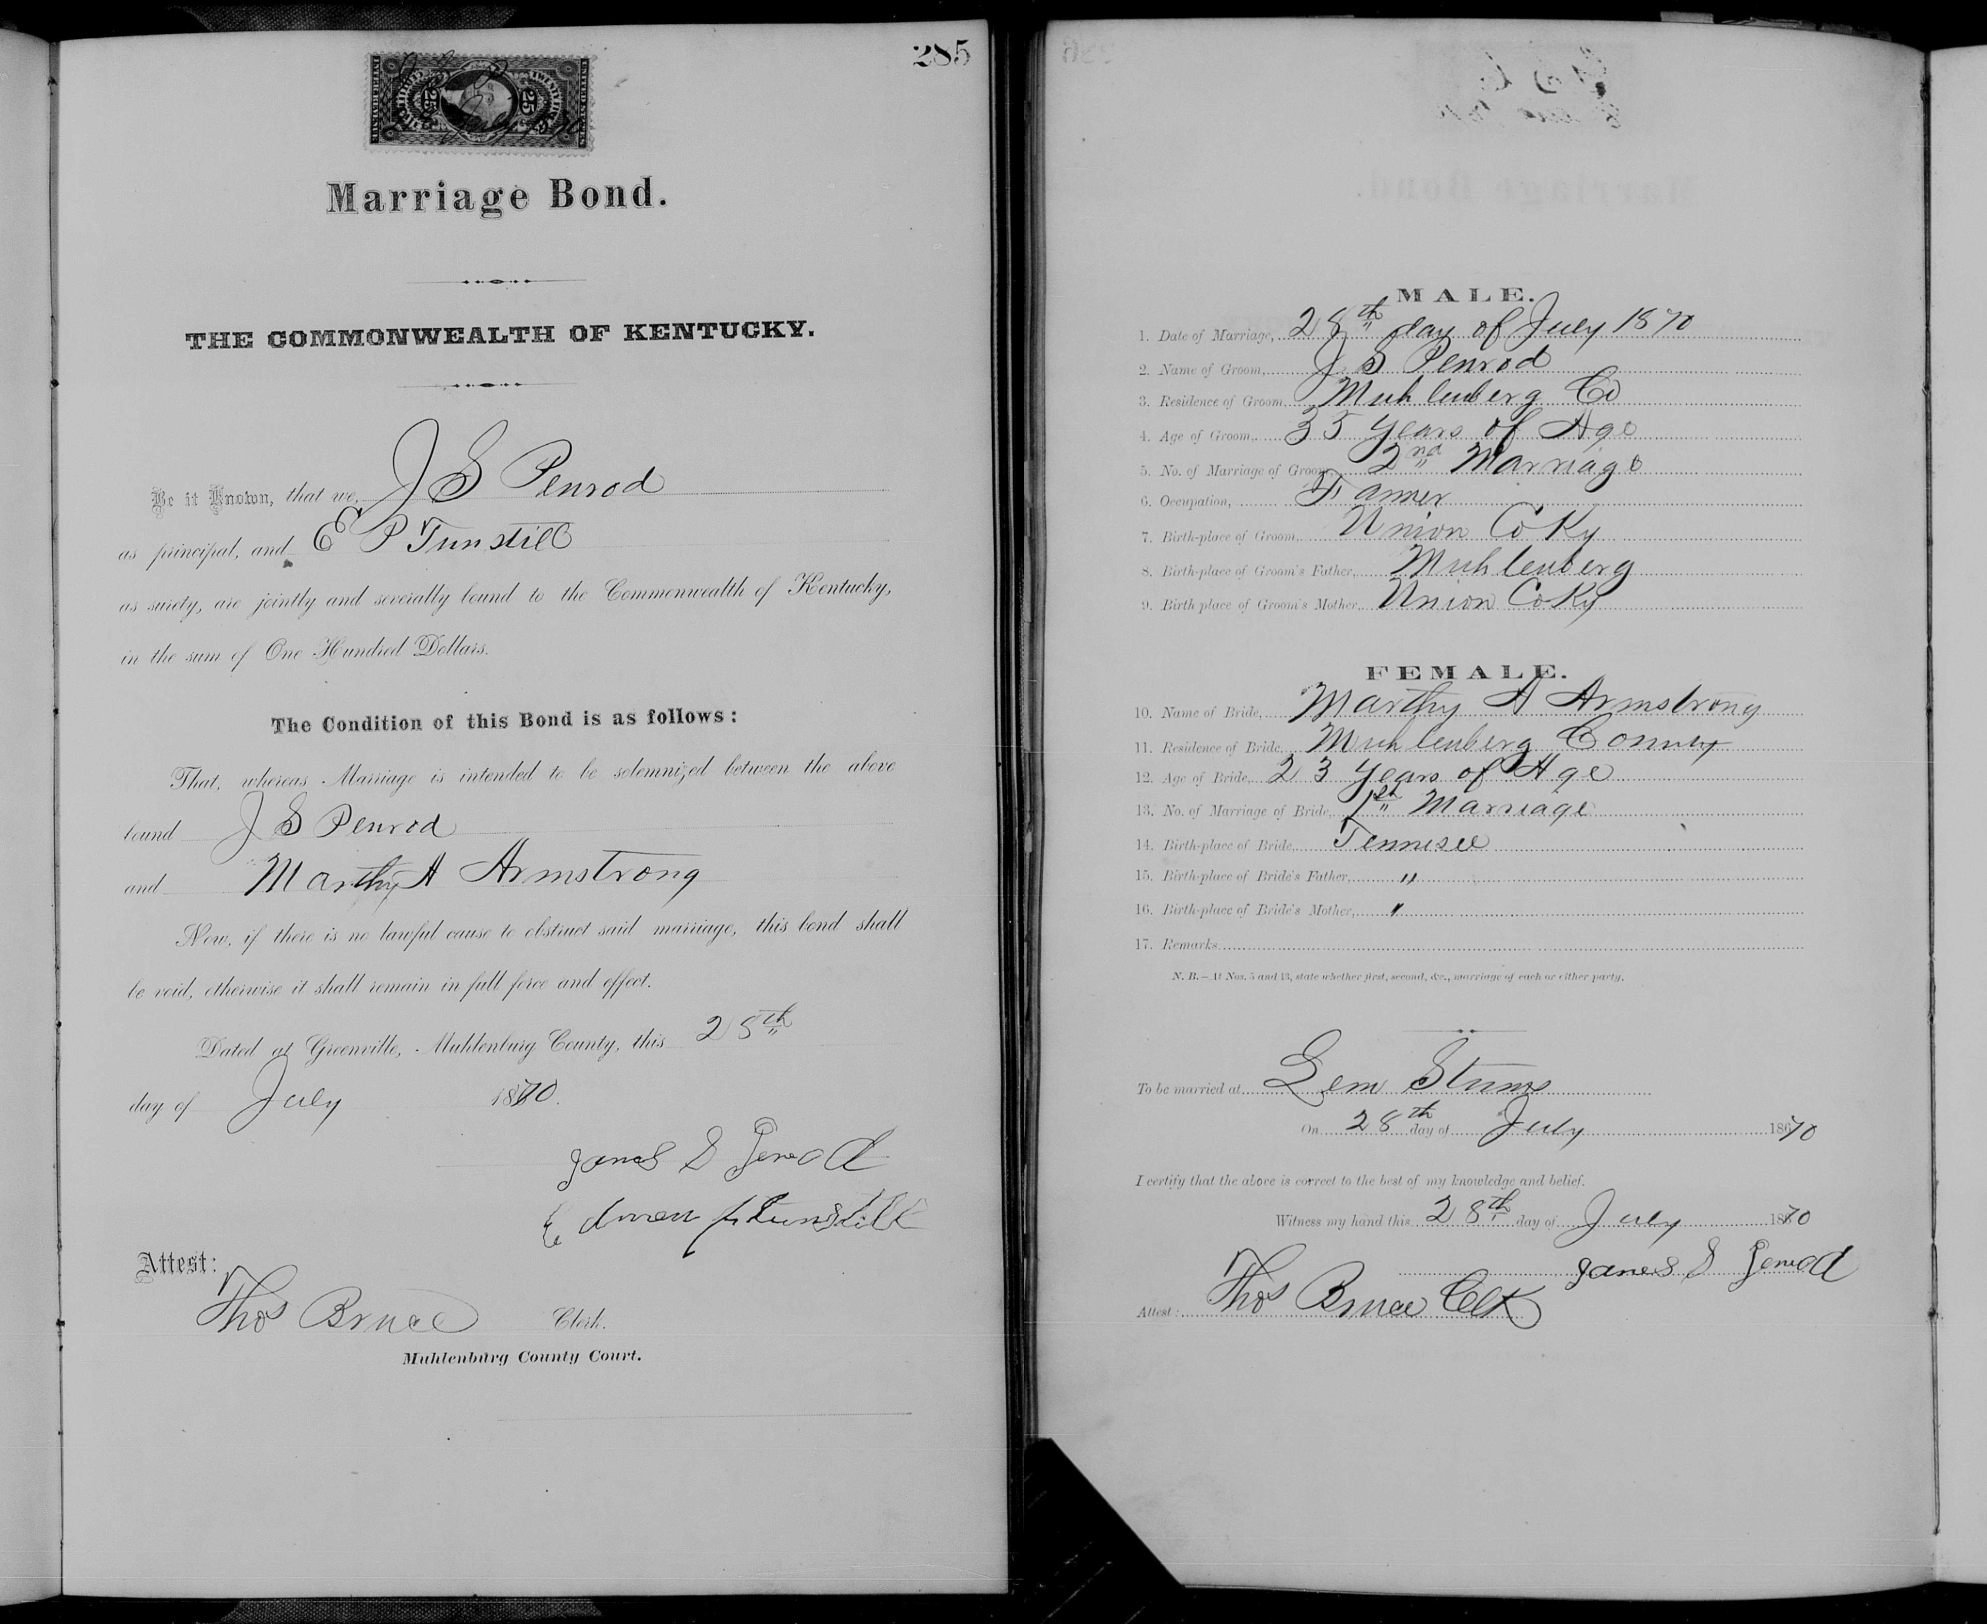 285
25 25
Marriage Bond.
THE COMMONWEALTH OF KENTUCKY.
Be it Known, that we, J S Penrod
as principal, and E P Tunstill
as surety, are jointly and severally bound to the Commonwealth of Kentucky,
in the sum of One Hundred Dollars.
The Condition of this Bond is as follows:
That, whereas Marriage is intended to be solemnized between the above
bound J S Penrod
and Marthy A Armstrong
Now, if there is no lawful cause to obstruct said marriage, this bond shall
be void, otherwise it shall remain in full force and effect.
Dated at Greenville, Muhlenburg County, this 25th
day of July 1870.
James S Penrod
Tunstill
Attest:
Thos Bruce Clerk.
Muhlenburg County Court.
MALE.
1. Date of Marriage, 28th day of July 1870
2. Name of Groom, J S Penrod
3. Residence of Groom, Muhlenberg Co
4. Age of Groom, 35 Years of Age
5. No. of Marriage of Groom, 2nd Marriage
6. Occupation, Farmer
7. Birth-place of Groom, Union Co Ky
8. Birth-place of Groom's Father, Muhlenberg
9. Birth place of Groom's Mother, Union Co Ky
FEMALE.
10. Name of Bride, Marthy A Armstrong
11. Residence of Bride, Muhlenberg County
12. Age of Bride, 23 Years of Age
13. No. of Marriage of Bride, 1st Marriage
14. Birth-place of Bride, Tennesee
15. Birth-place of Bride's Father, "
16. Birth-place of Bride's Mother, "
17. Remarks
N. B.—At Nos. 5 and 13, state whether first, second, &c., marriage of each or either party.
To be married at Lem Stums
On 28th day of July 1870
I certify that the above is correct to the best of my knowledge and belief.
Witness my hand this 28th day of July 1870
James S Penrod
Attest: Thos Bruce Clk